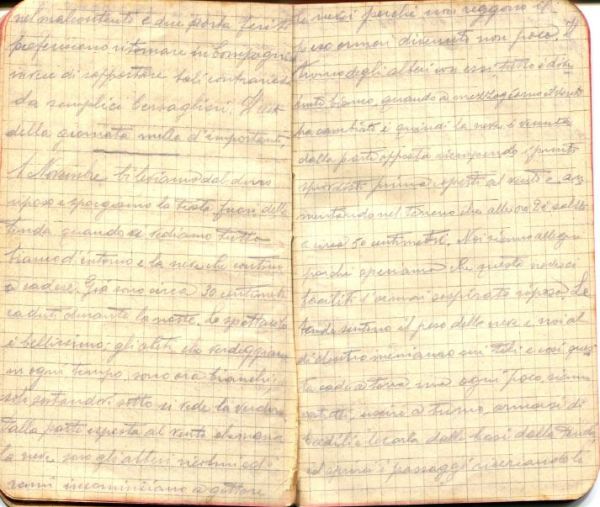 nel malcontento e due porta feriti
preferiscono ritornare in compagnia
invece di sopportare tali contrarietà
da semplici bersaglieri. Il resto
della giornata nulla d'importante.
1 Novembre. Ci leviamo dal duro
riposo e sporgiamo la testa fuori della
tenda quando vediamo tutto
bianco d'intorno e la neve che continua
a cadere. Già sono circa 30 centimetri
caduti durante la notte. Lo spettacolo
è bellissimo: gli abeti che verdeggiano
in ogni tempo, sono ora bianchi;
solo portandosi sotto si vede la verdura
dalla parte esposta al vento
la neve, sono gli alberi
rami incominciano a gettare
la neve perchè non reggono il
peso ormai divenuto non poco. Il
tronco degli alberi con essi tutto è
bianco, quando a mezzogiorno il vento
ha cambiato e quindi la neve è venuta
dalla parte opposta riempiendo i punti
prima esposti al vento e au
mentando nel terreno che alle ore 24 salì
a circa 50 centimetri. Noi siamo allegri
poichè speriamo che questo
l'ormai sospirato riposo. Le
tende sentono il peso della neve e noi al
di dentro meniamo sui teli e così ques
ta cade a terra ma ogni poco, siamo
costretti, uscire a turno, armarsi di
badili e levarla dalle basi della tenda,
ed i passaggi